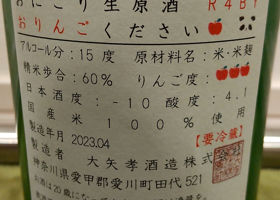 おにごり生原酒 R4BY
おりんごください
アルコール分:15度 原材料名:米・米麹
精米歩合:60% りんご度:
日本酒度:-10 酸度:4.1
国産米100%使用
製造年月 2023.04 【要冷蔵】
製造者 大矢孝酒造株式会
神奈川県愛甲郡愛川町田代521